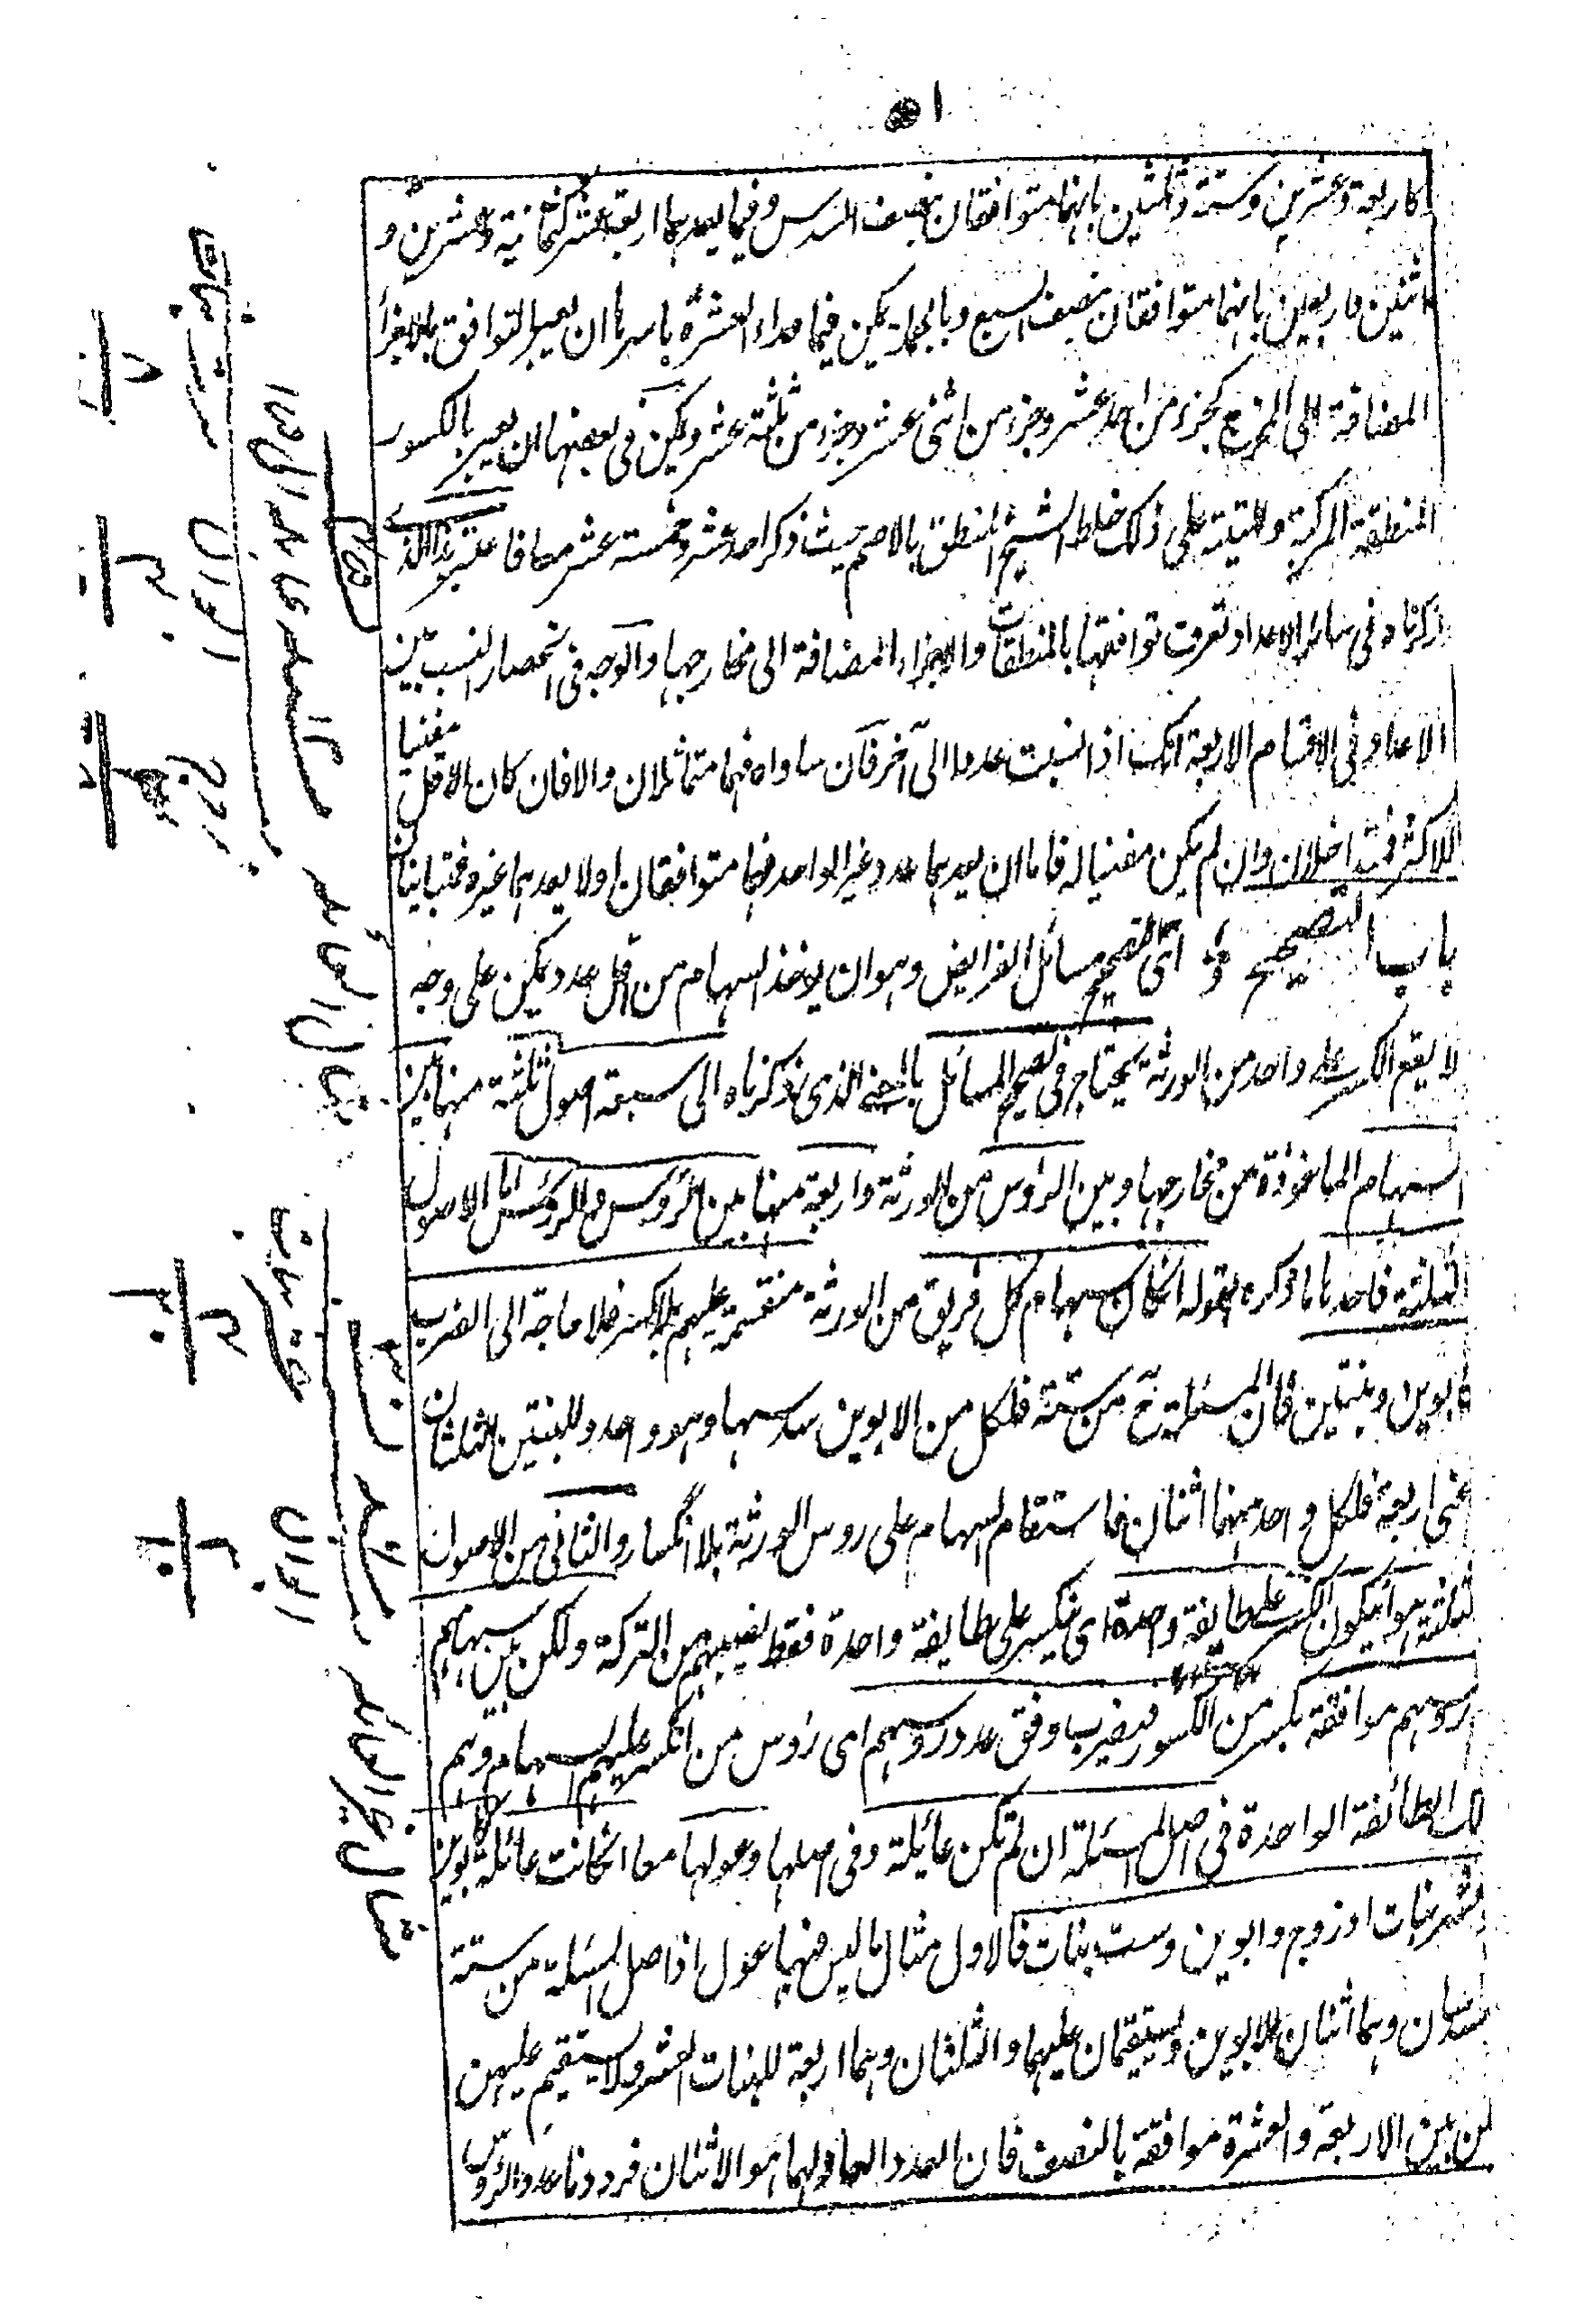 كاربعة وعشرين وستة وثلثين بانهما متوافقان بنصف السدس وفيما يعدهما اربعة عشر كثمانية وعشرين و
اثنين واربعين بانهما متوافقان بنصف السبع وبالجملة يمكن فيما وراء العشرة باسرها ان يعبر التوافق بالاجزا
المضافة الى المخرج كجزء من احد عشر وجزء من اثنى عشر وجزء من ثلثة عشر ويمكن فى بعضها ان يعبر بالكسور
المنطقة المركبة وللتنبيه على ذلك خلط الشيخ المنطق بالاصم حيث ذكر احد عشر وخمسة عشر معا فاعتبر هذا الذى
ذكرناه فى سائر الاعداد تعرف توافقها بالمنطقات والاجزاء المضافة الى مخارجها والوجه فى انحصار النسب بين
الاعداد فى الاقسام الاربعة انك اذا نسبت عددا الى آخر فان ساواه فهما متماثلان والا فان كان الاقل مفنيا
للاكثر فمتداخلان وان لم يكن مفنيا له فاما ان يعدهما عدد غير الواحد فهما متوافقان اولا يعدهما غيره فمتباينان
باب التصحيح اى تصحيح مسائل الفرايض وهو ان يوخذ السهام من اقل عدد يمكن على وجه
لا يقع الكسر على واحد من الورثة يحتاج فى تصحيح المسائل بالمعنى الذى ذكرناه الى سبعة اصول ثلثة منها بين
السهام الماخوذة من مخارجها وبين الرؤس من الورثة واربعة منها بين الرؤس والرؤس اما الاصول
الثلثة فاحدها ما ذكره بقوله انكان سهام كل فريق من الورثة منقسمة عليهم بلا كسر فلا حاجة الى الضرب
كابوين وبنتين فان المسئلة ح من ستة فلكل من الابوين سدسها وهو واحد وللبنتين الثلثان
اعنى اربعة فلكل واحد منهما اثنان فاستقام السهام على روس الورثة بلا انكسار والثانى من الاصول
الثلثة هو ان يكون الكسر على طايفة واحدة اى ينكسر على طايفة واحدة فقط نصيبهم من التركة ولكن بين سهامهم
وروسهم موافقة بكسر من الكسور فيضرب وفق عدد روسهم اى رؤس من انكسر عليهم السهام وهم
تلك الطائفة الواحدة فى اصل المسئلة ان لم تكن عائلة وفى اصلها وعولها معا انكانت عائلة كابوين
وعشر بنات او زوج وابوين وست بنات فالاول مثال ما ليس فيها عول اذ اصل المسئلة من ستة
السدسان وهما اثنان للابوين ويستقيمان عليهما والثلثان وهما اربعة للبنات العشر ولا يستقيم عليهن
لكن بين الاربعة والعشرة موافقة بالنصف فان العدد العاد لهما هو الاثنان فرددنا عدد الرؤس